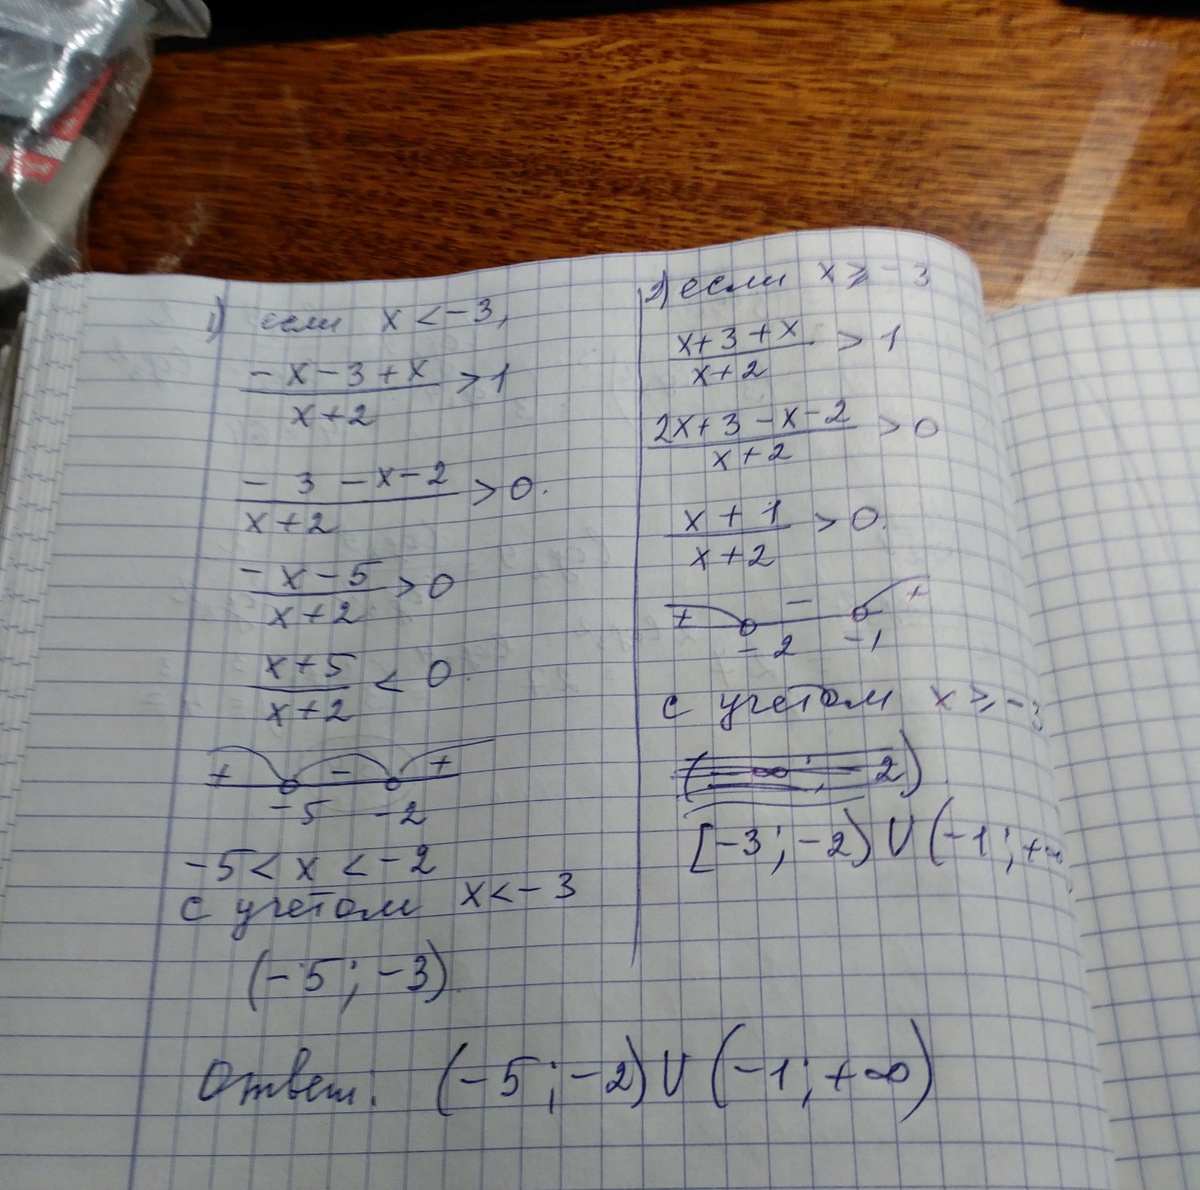 1) если x < -3,
-x-3+x
x+2
> 1
-3-x-2
x+2
> 0.
-x-5
x+2
> 0
x+5
x+2
< 0.
+ - +
-5 -2
-5 < x < -2
с учетом x < -3
(-5; -3).
2) если x ⩾ -3
x+3+x
x+2
> 1
2x+3-x-2
x+2
> 0
x+1
x+2
> 0.
+ - +
-2 -1
с учетом x ⩾ -3
(-∞; -2)
[-3; -2) ∪ (-1; +∞
Ответ: (-5; -2) ∪ (-1; +∞)